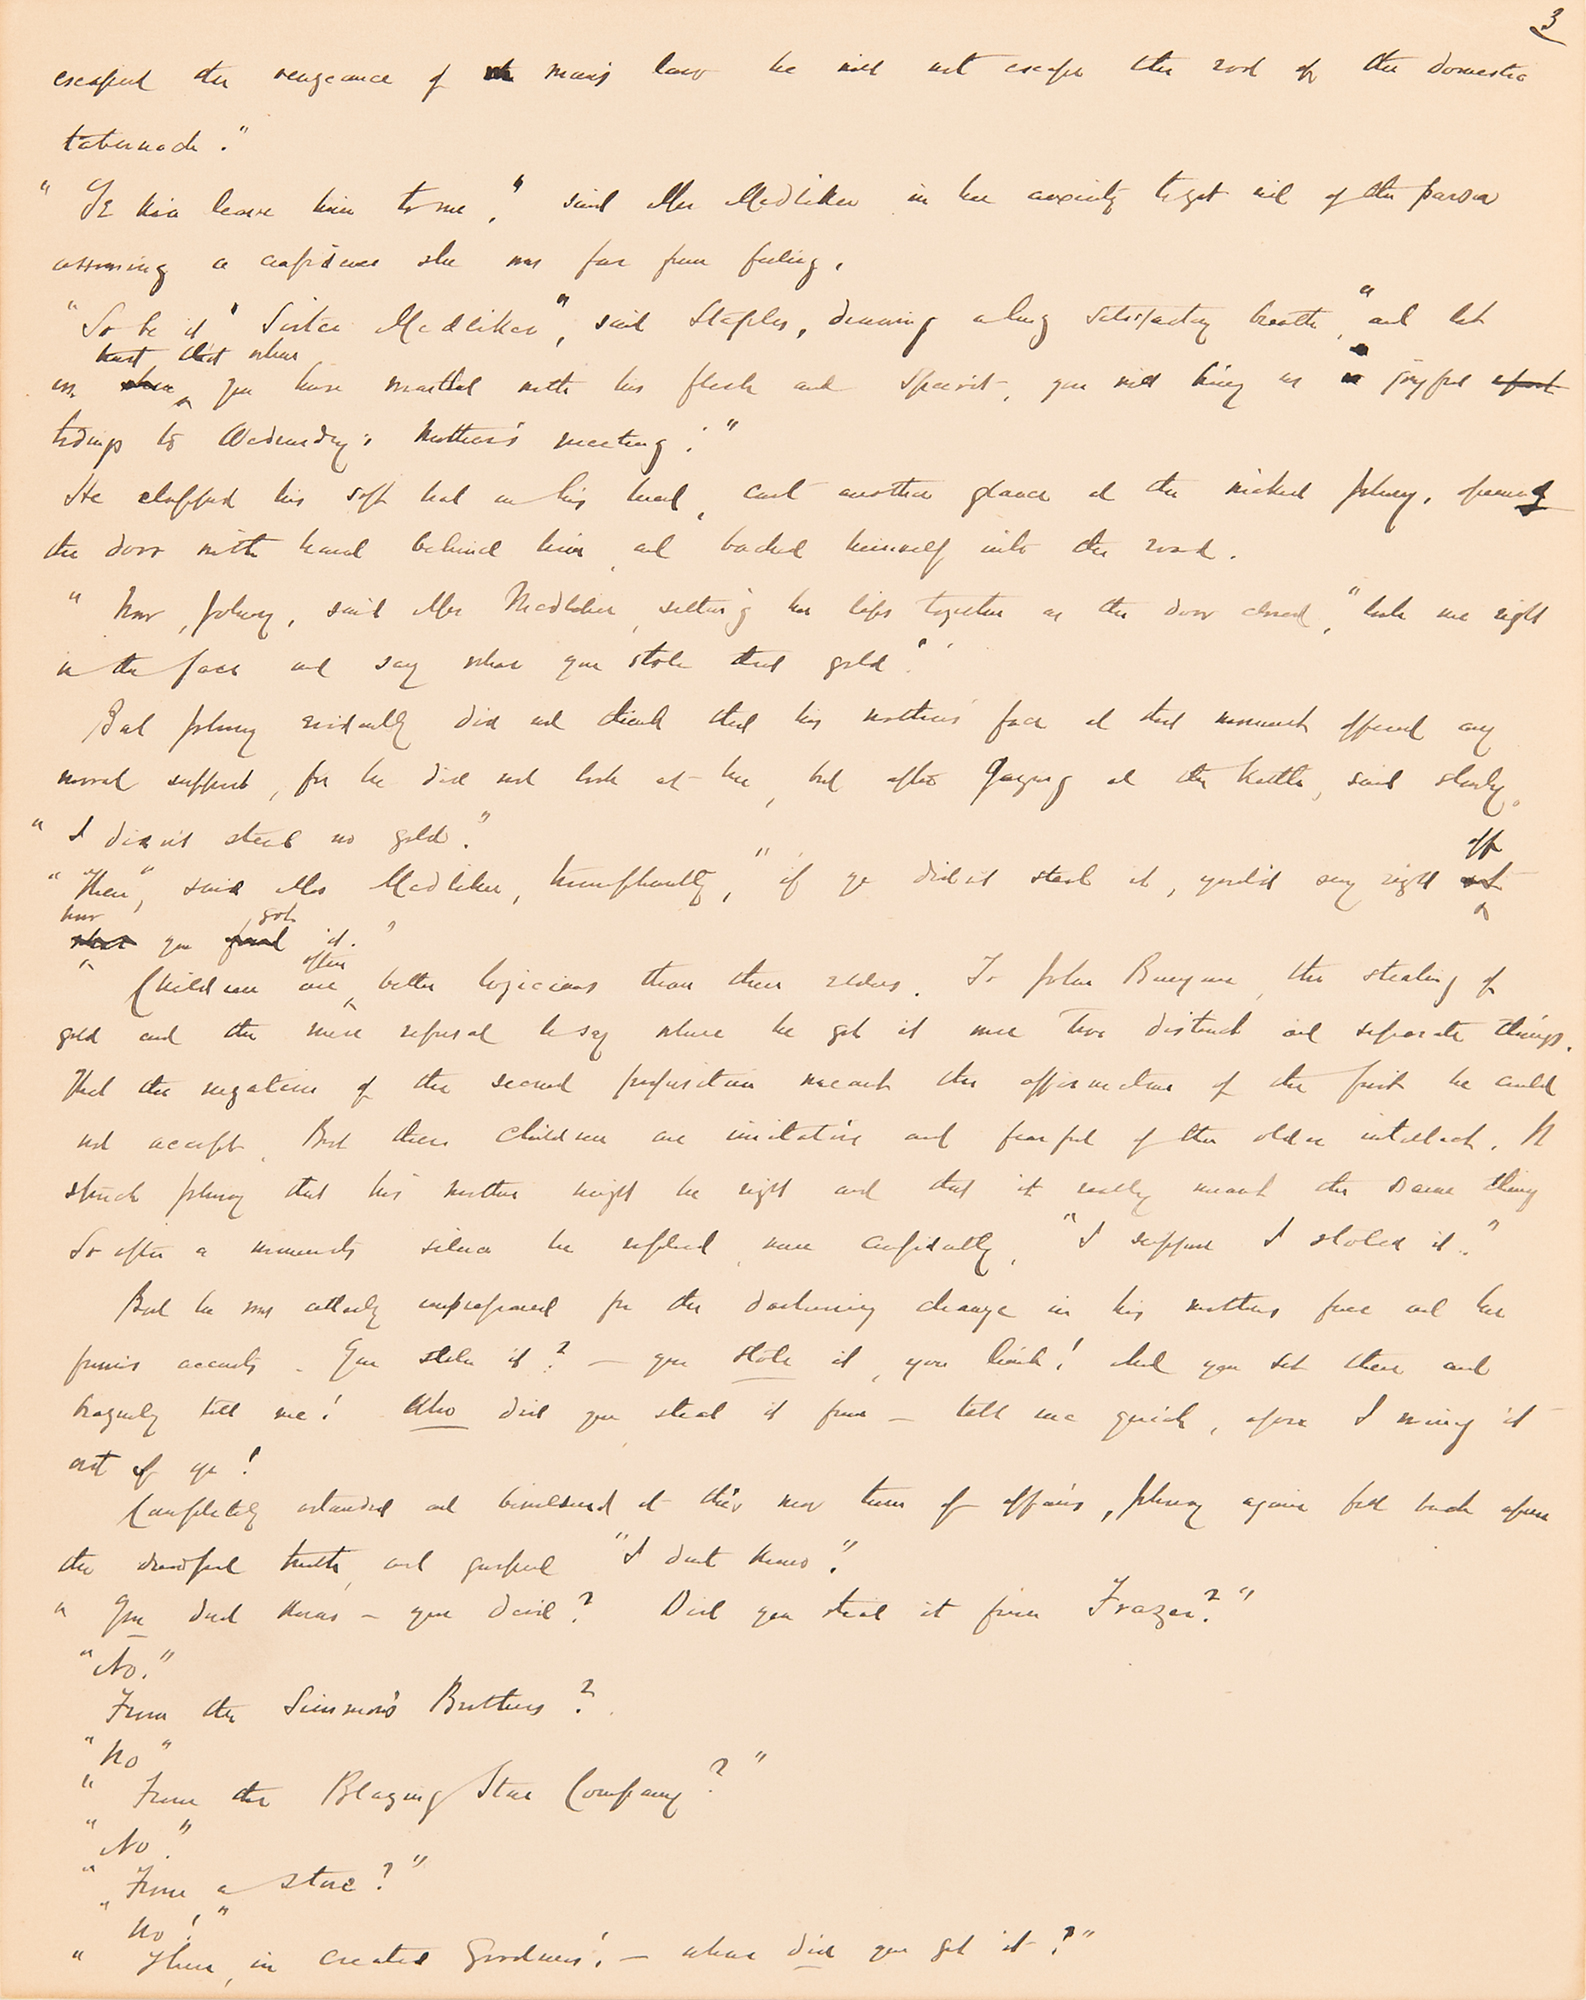 3
escaped the vengeance of man's law he will not escape the rod of the domestic
tabernacle."
"Ye kin leave him to me," said Mrs Medliker in her anxiety to get rid of the parson
assuming a confidence she was far from feeling.
"So be it Sister Medliker", said Staples, drawing a long satisfactory breath, "and let
us trust that when you have wrastled with his flesh and speerit, you will bring us joyful
tidings to Wednesday's Mother's meeting."
He clapped his soft hat on his head, cast another glance at the wicked Johnny, opening
the door with hand behind him, and backed himself into the road.
"Now, Johnny, said Mrs Medliker, setting her lips together as the door closed, "look me right
in the face and say where you stole that gold"
But Johnny evidently did not think that his mother's face at that moment offered any
moral support, for he did not look at her, but after gazing at the kettle, said slowly.
"I didn't steal no gold."
"Then", said Mrs Medliker, triumphantly, "if ye didn't steal it, you'd say right off
how you got it."
Children are often better logicians than their elders. To John Bunyan, the stealing of
gold and the mere refusal to say where he got it were two distinct and separate things.
That the negation of the second proposition meant the affirmation of the first he could
not accept. But then children are imitative and fearful of the older intellect. It
struck Johnny that his mother might be right and that it really meant the same thing
So after a moments silence he replied more confidently, "I suppose I stoled it."
But he was utterly unprepared for the darkening change in his mothers face and her
furious accents. You stole it? — you stole it, you limb! And you set there and
brazenly tell me! Who did you steal it from — tell me quick, afore I wring it
out of ye!
Completely astounded and bewildered at this new turn of affairs, Johnny again fell back upon
the dreadful truth, and gasped "I dont know".
"You dont know — you devil? Did you steal it from Frazer?"
"No."
From the Simmons Brothers?
"No"
"From the Blazing Star Company?"
"No."
"From a store?"
"No!"
"Then, in created Goodness! — where did you get it?"